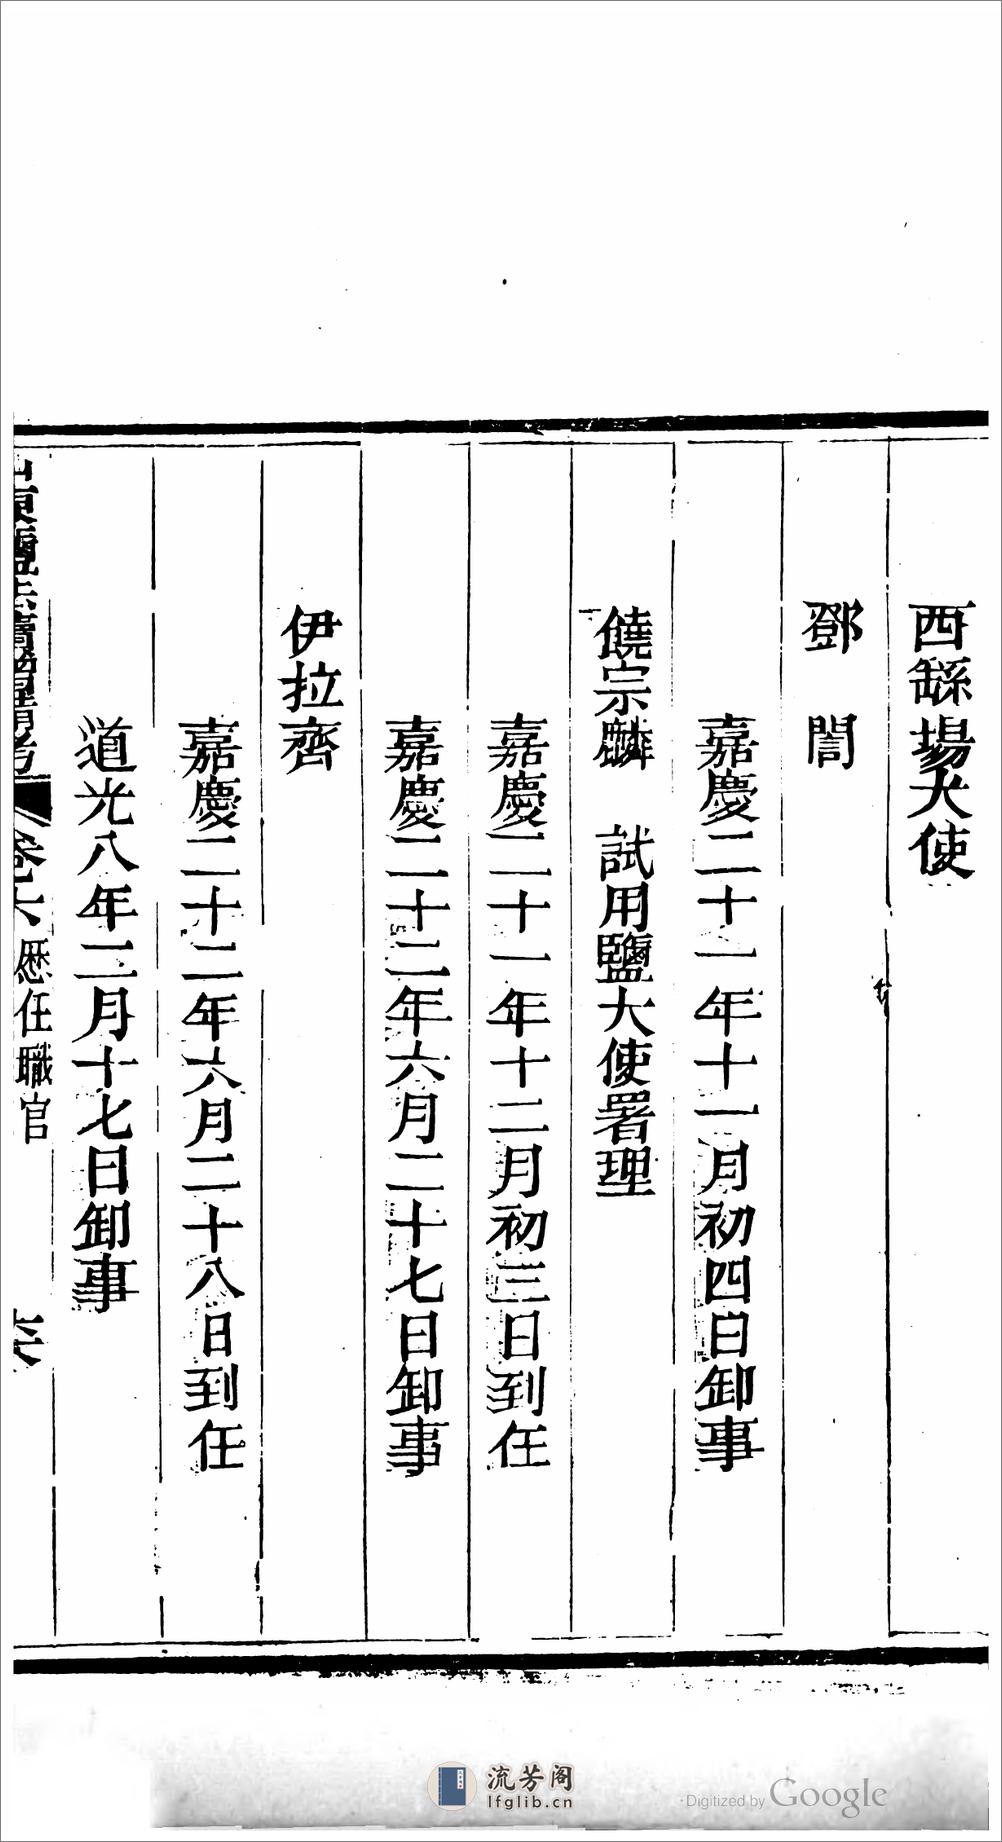 西繇場大使
鄧　誾
嘉慶二十一年十一月初四日卸事
饒宗麟　試用鹽大使署理
嘉慶二十一年十二月初三日到任
嘉慶二十二年六月二十七日卸事
伊拉齊
嘉慶二十二年六月二十八日到任
道光八年二月十七日卸事
山東鹽法續增備考　卷六　歷任職官
流芳阁
lfglib.cn
Digitized by Google